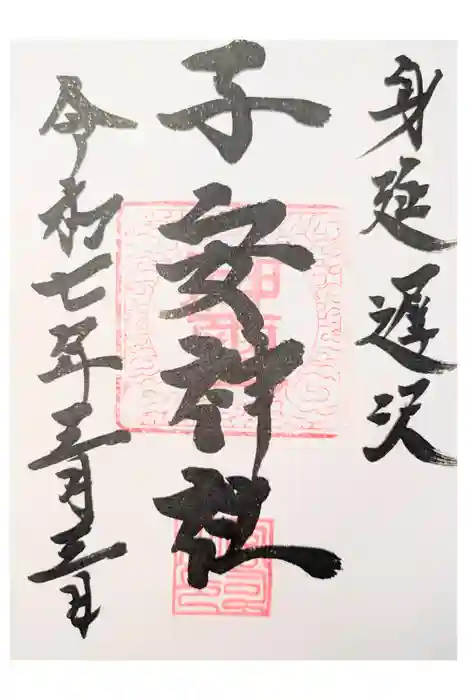 身延遅沢
子安神社
令和七年三月三日